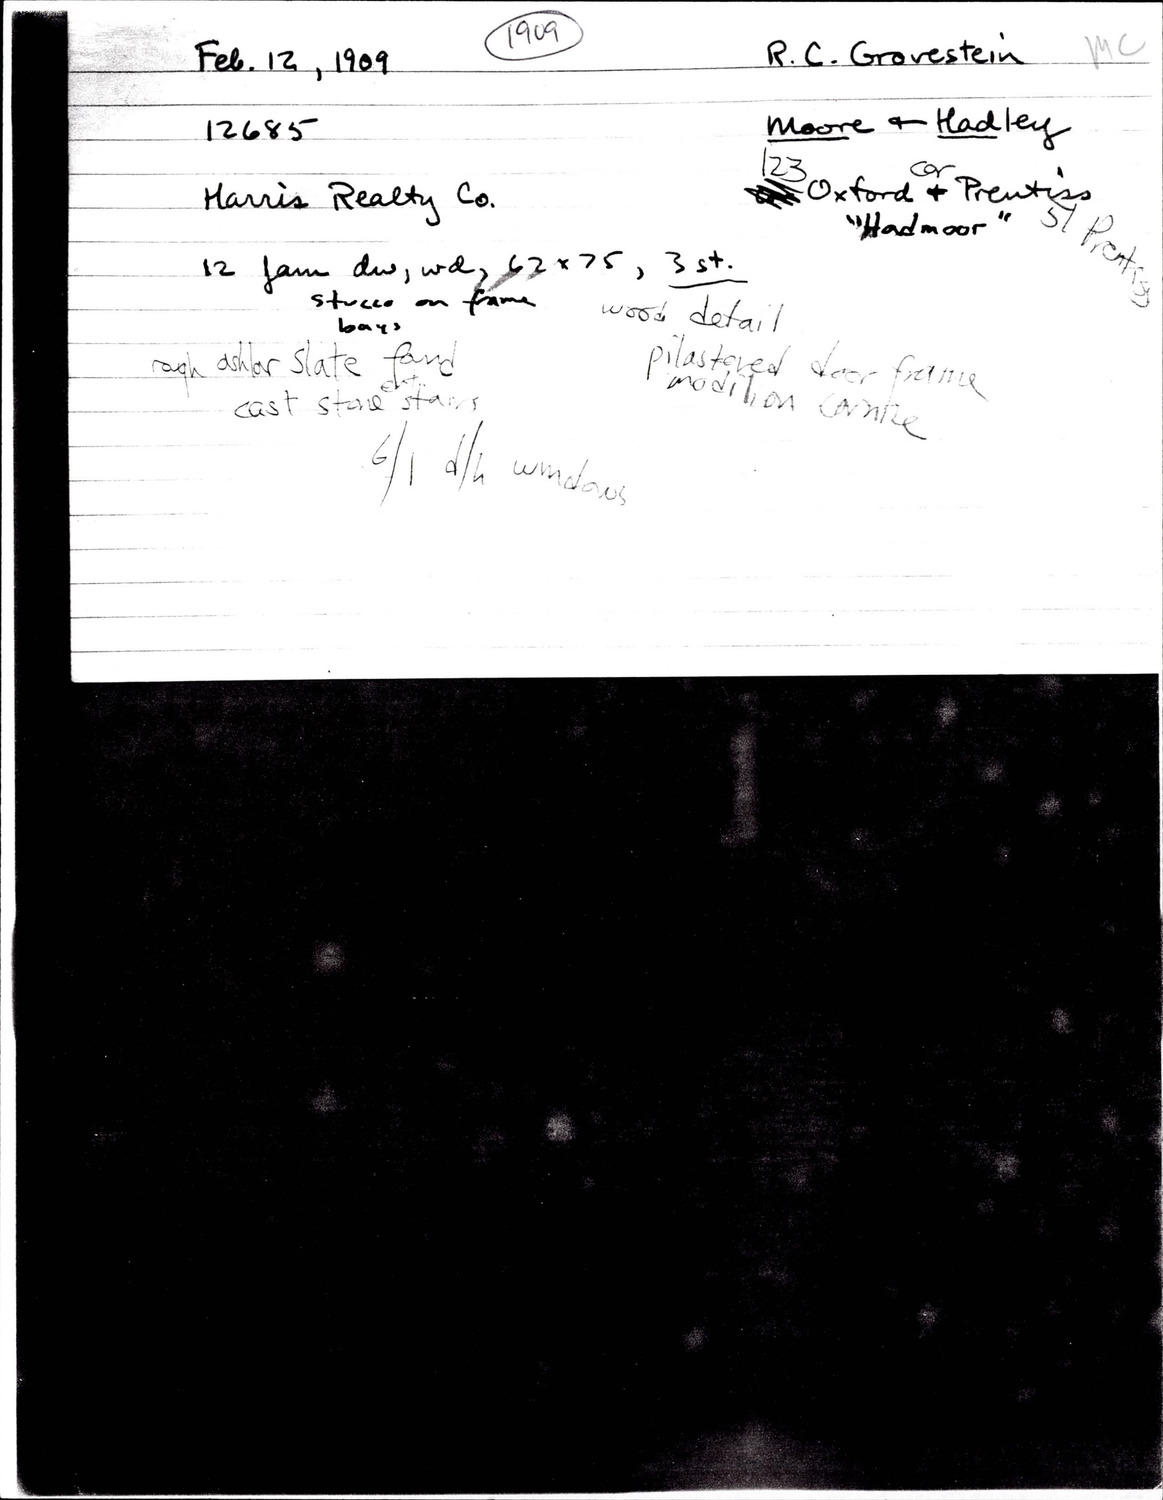 1909
Feb. 12, 1909
R. C. Grovestein MC
12685
Moore + Hadley
123 cor
Oxford + Prentiss
Harris Realty Co.
"Hadmoor"
51 Prentiss
12 fam dw, wd, 62 x 75, 3 st.
stucco on frame
bays
wood detail
rough ashlar slate fand
cast stone stairs
pilastered door frame
modillion cornice
6/1 d/h windows